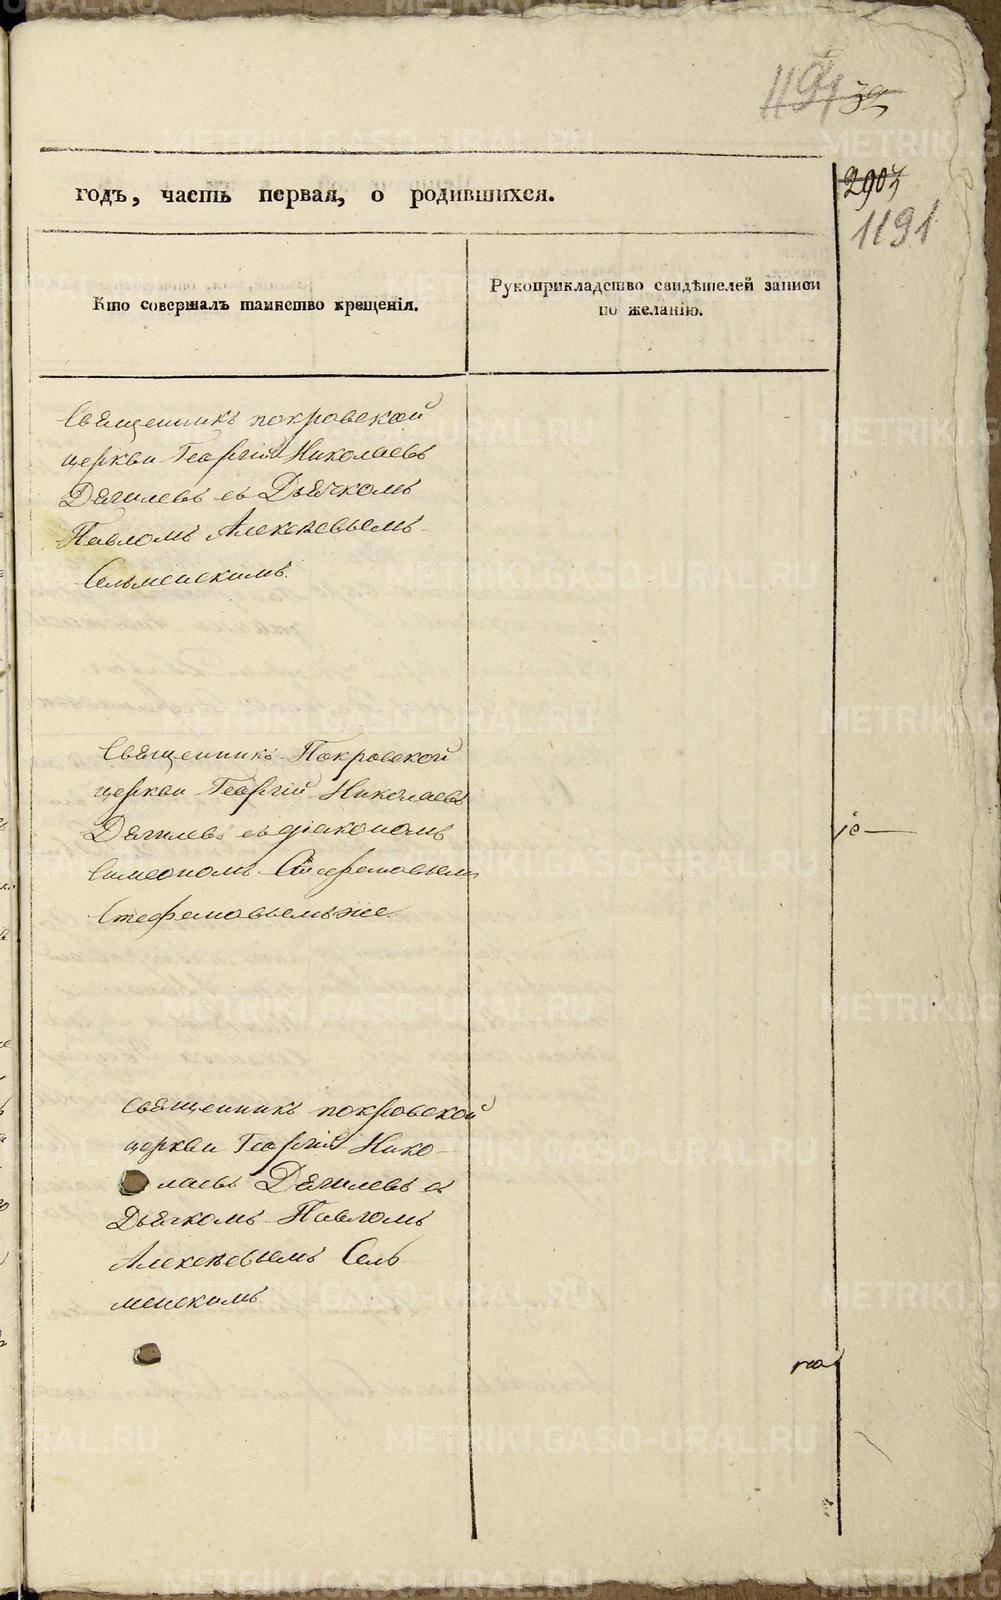 1191
39
годъ, часть первая, о родившихся.
2907
1191
Кто совершалъ таинство крещенія.
Рукоприкладство свидѣтелей записи
по желанію.
Священникъ покровской
церкви Георгій Николаевъ
Дягилевъ съ Дьячкомъ
Павломъ Алексѣевымъ
Сельменскимъ.
Священникъ Покровской
церкви Георгій Николаевъ
Дягилевъ съ діакономъ
Симеономъ Стефановымъ
Стефановымъ же.
Священникъ покровской
церкви Георгій Нико-
лаевъ Дягилевъ съ
Дьячкомъ Павломъ
Алексѣевымъ Сель
менскимъ.
METRIKI.GASO-URAL.RU